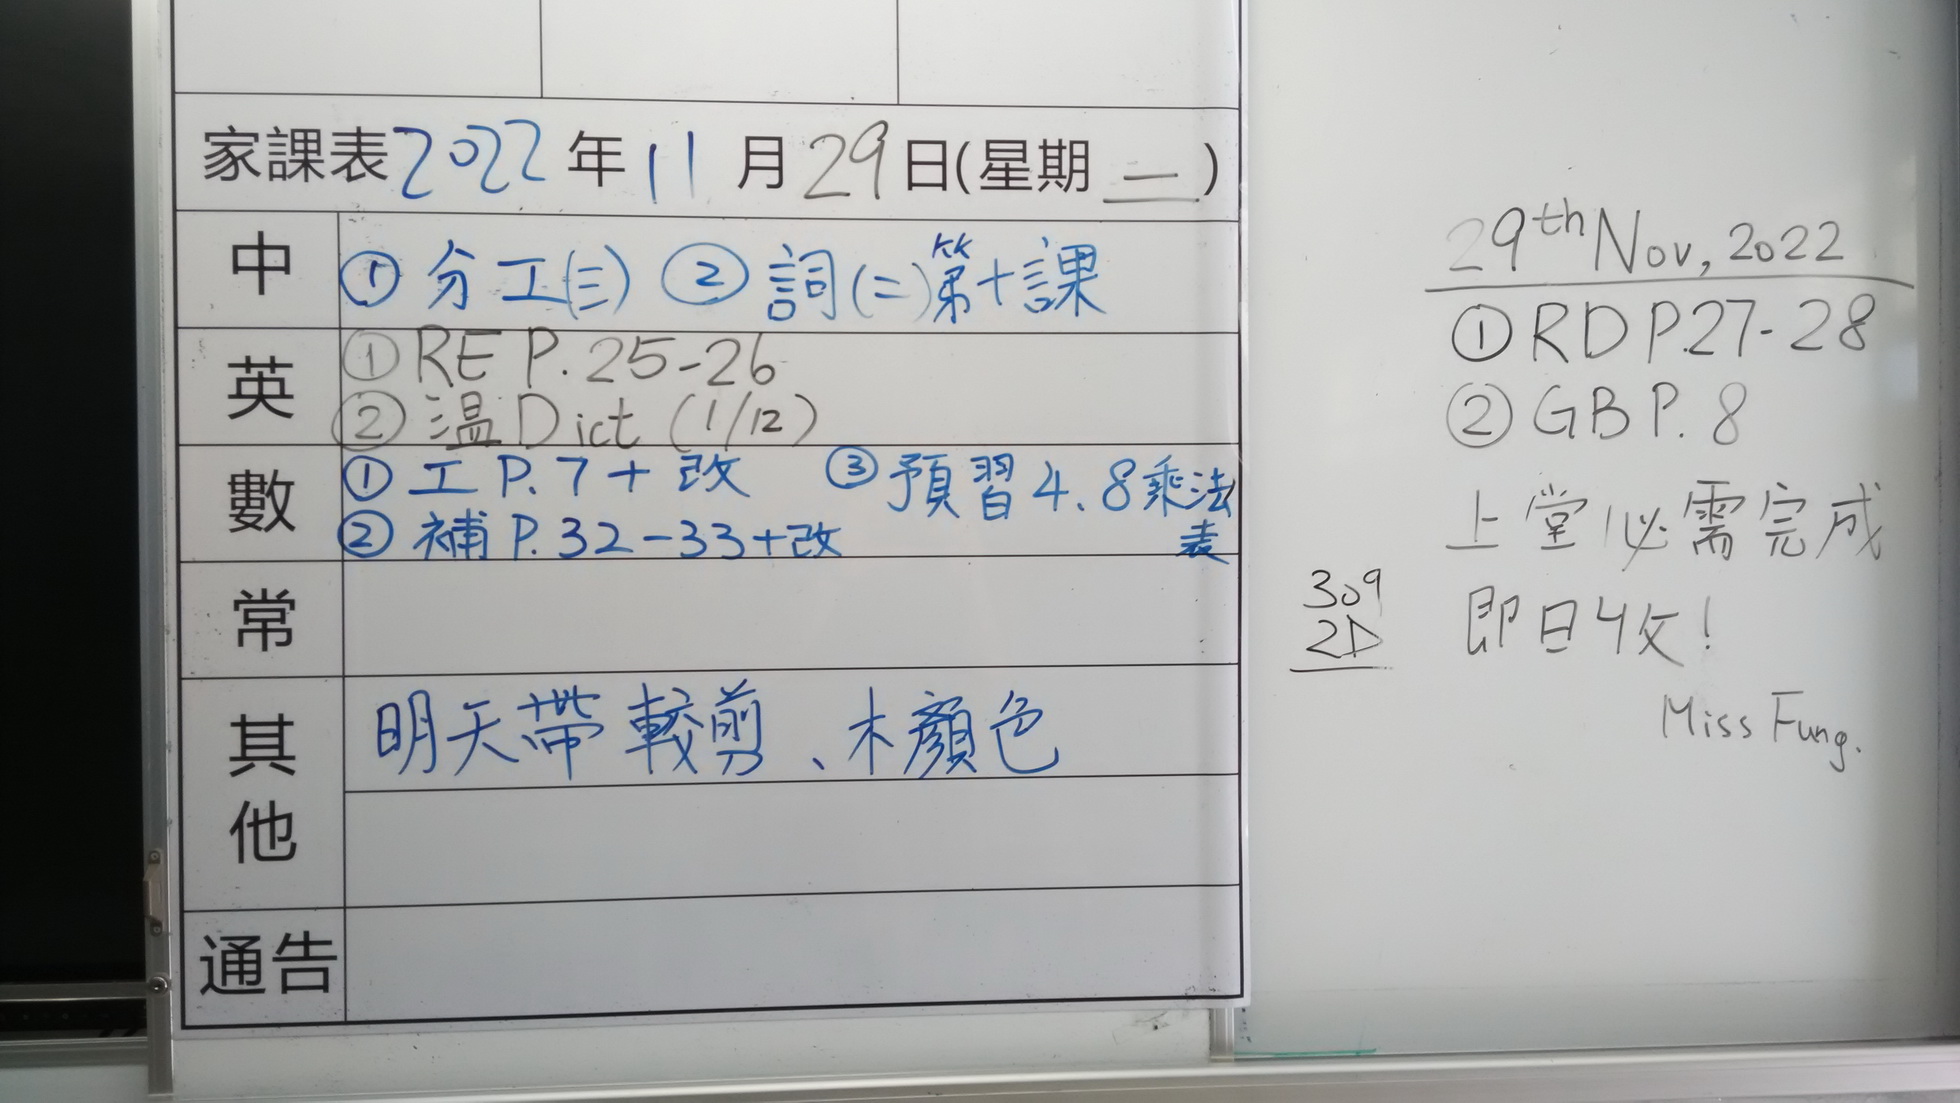 家課表2022年11月29日(星期二)
中
① 分工(三) ② 詞(二)第十課
英
① RE P.25-26
② 温Dict (1/12)
數
① 工 P.7+改 ③ 預習4、8乘法表
② 補 P.32-33+改
常
其他
明天帶較剪、木顏色
通告
29th Nov, 2022
① RD P.27-28
② GB P.8
上堂必需完成
即日收!
Miss Fung.
309
2D